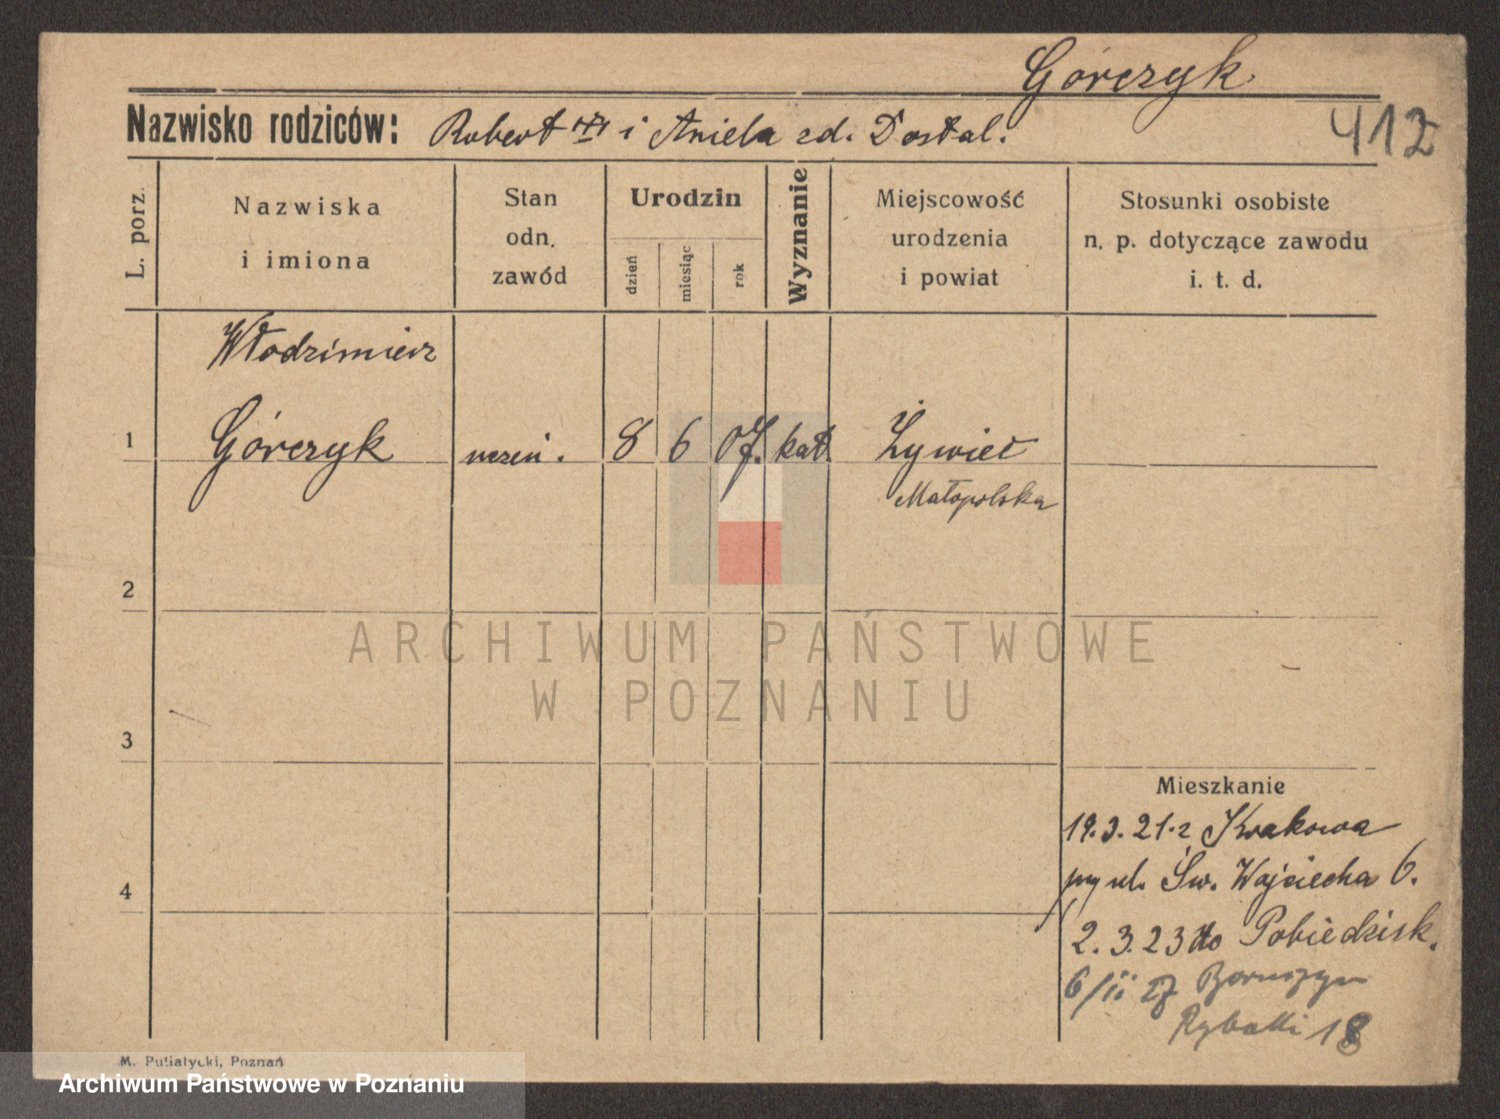 Górczyk
412
Nazwisko rodziców: Robert i Aniela zd. Dostal.
L. porz.
Nazwiska
i imiona
Stan
odn.
zawód
Urodzin
dzień
miesiąc
rok
Wyznanie
Miejscowość
urodzenia
i powiat
Stosunki osobiste
n. p. dotyczące zawodu
i. t. d.
Włodzimierz
1 Górczyk uczeń. 8 6 07. kat. Żywiec
Małopolska
2
ARCHIWUM PAŃSTWOWE
W POZNANIU
3
Mieszkanie
19.3.21 z Krakowa
przy ul. Św. Wojciecha 6.
4
2.3.23 do Pobiedzisk.
6/II 27
Rybaki 18
M. Putiatycki, Poznań
Archiwum Państwowe w Poznaniu